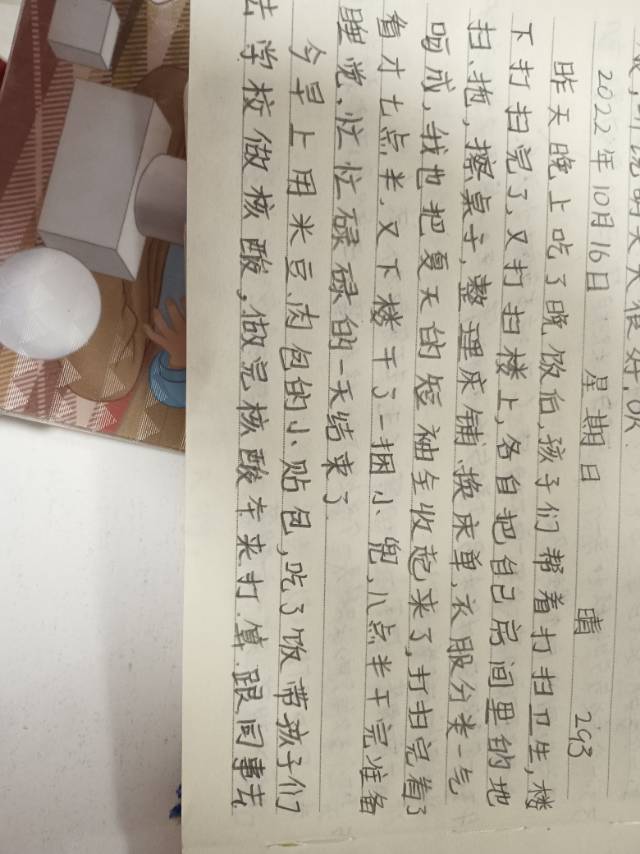 2022年10月16日 星期日 晴 293
昨天晚上吃了晚饭后,孩子们帮着打扫卫生,楼
下打扫完了,又打扫楼上,各自把自己房间里的地
扫、拖,擦桌子,整理床铺、换床单,衣服分类一气
呵成,我也把夏天的短袖全收起来了,打扫完看了
看才七点半,又下楼干了一捆小兜,八点半干完准备
睡觉,忙忙碌碌的一天结束了.
今早上用米豆、肉包的小贴包,吃了饭带孩子们
去学校做核酸,做完核酸本来打算跟同事去